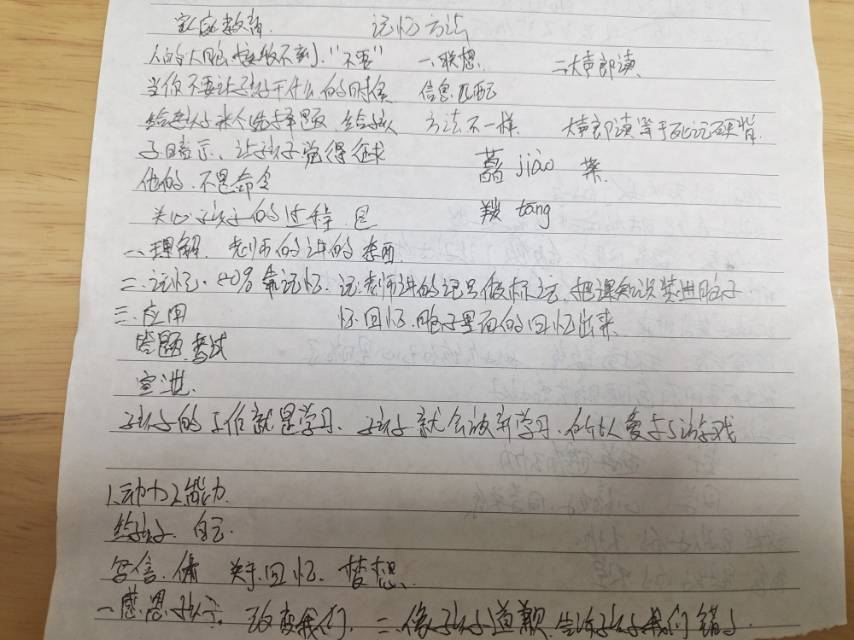 家庭教育 记忆方法
人的大脑接收不到“不要” 一、联想 二大声郎读
当你不要让孩子干什么的时候 信息匹配
给孩子来个选择题 给孩子 方法不一样 大声郎读等于死记硬背
子暗示、让孩子觉得征求 藠 jiào 菜
他的、不是命令 羰 tang
关心孩子的过程 是
一、理解 老师的讲的东西
二、记忆、80%靠记忆、记老师讲的记号做标记、把课知识装进脑子
三、应用 怀回忆、脑子里面的回忆出来
答题、考试
宣泄、
孩子的工作就是学习、孩子就会放弃学习、所以人爱上游戏
1、动力2、能力
给孩子、自己
写信、倩 关于回忆、梦想、
一感恩孩子、改变我们、二、像孩子道歉、告诉孩子我们错了